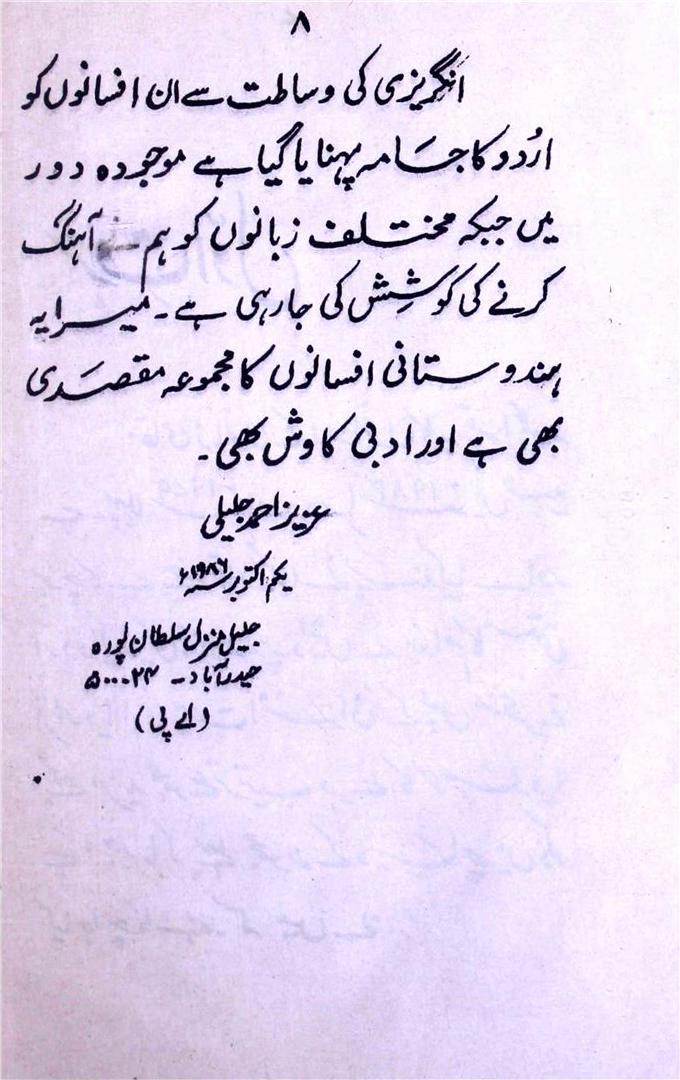 ۸
انگریزی کی وساطت سے ان افسانوں کو
اُردو کا جامہ پہنایا گیا ہے موجودہ دور
میں جبکہ مختلف زبانوں کو ہم آہنگ
کرنے کی کوشِش کی جارہی ہے۔ میرا یہ
ہندوستانی افسانوں کا مجموعہ مقصَدی
بھی ہے اور ادبی کاوش بھی۔
عزیز احمد جلیلی
یکم اکتوبر ۱۹۸۶ء
جلیل منزل سلطان پورہ
حیدرآباد۔ ۵۰۰۰۲۴
(اے پی)